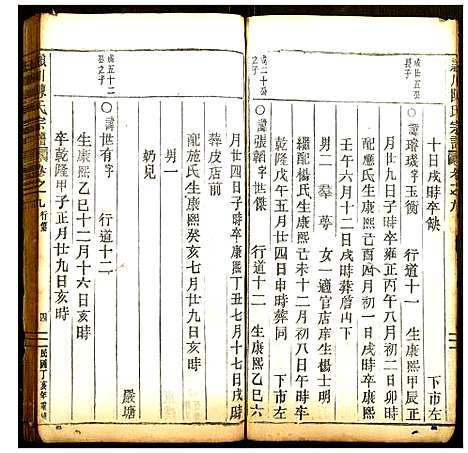 潁川陳氏宗譜 卷之九
十日戌時卒缺
下市左
成世五公長子
諱璿璣字玉衡 行道十一 生康熙甲辰正
月廿九日子時卒雍正丙午八月初二日卯時
配應氏生康熙己酉四月初一日戌時卒乾隆
壬午六月十二日戌時葬眉山下
男二 羣 萼 女一適官店庠生楊士明
繼配楊氏生康熙 未十二月初八日午時卒
乾隆戊午五月廿四日申時葬同 下市左
成二十公之子
諱張韜字世傑 行道十二 生康熙乙巳六
月廿四日子時卒康熙丁丑七月十七日戌時
葬皮店前
配施氏生康熙癸亥七月廿九日亥時
男一
奶兒
嚴塘
成五十二公之子
諱世有字 行道十二
生康熙乙巳十二月十六日亥時
卒乾隆甲子正月廿九日亥時
潁川陳氏宗譜 卷之九 行第 四 民國丁亥年重修